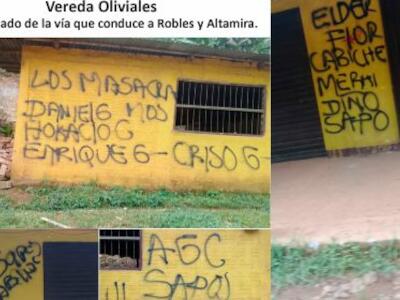 Vereda Oliviales
ado de la vía que conduce a Robles y Altamira.
LOS MASACRA
DANIEL G MOS
HORACIO G
ENRIQUE G - CRISO G -
ELDER
FLOR
CABICHE
MERMI
DINO
SAPO
AGC
SAPOS